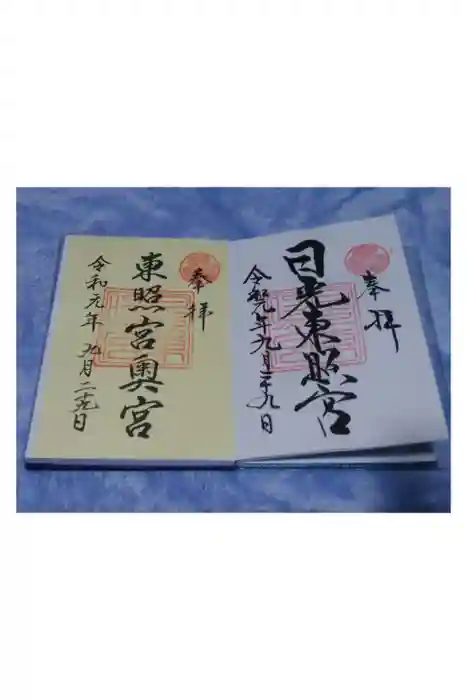 奉拝
日光東照宮
令和元年九月二十九日
奉拝
東照宮奥宮
令和元年九月二十九日